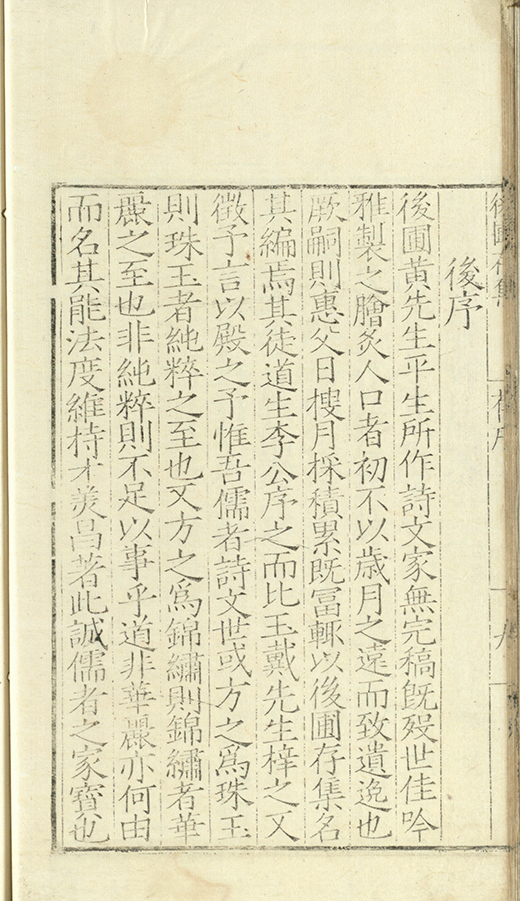 後圃存集
後序
後圃黃先生平生所作詩文家無完稿旣歿世佳吟
雅製之膾炙人口者初不以歳月之遠而致遺逸也
厥嗣則惠父日搜月採積累既冨輒以後圃存集名
其編焉其徒道生李公序之而比玉戴先生梓之又
徵予言以殿之予惟吾儒者詩文世或方之爲珠玉
則珠玉者純粹之至也又方之爲錦繡則錦繡者華
麗之至也非純粹則不足以事乎道非華麗亦何由
而名其能法度維持才羙昌著此誠儒者之家寶也